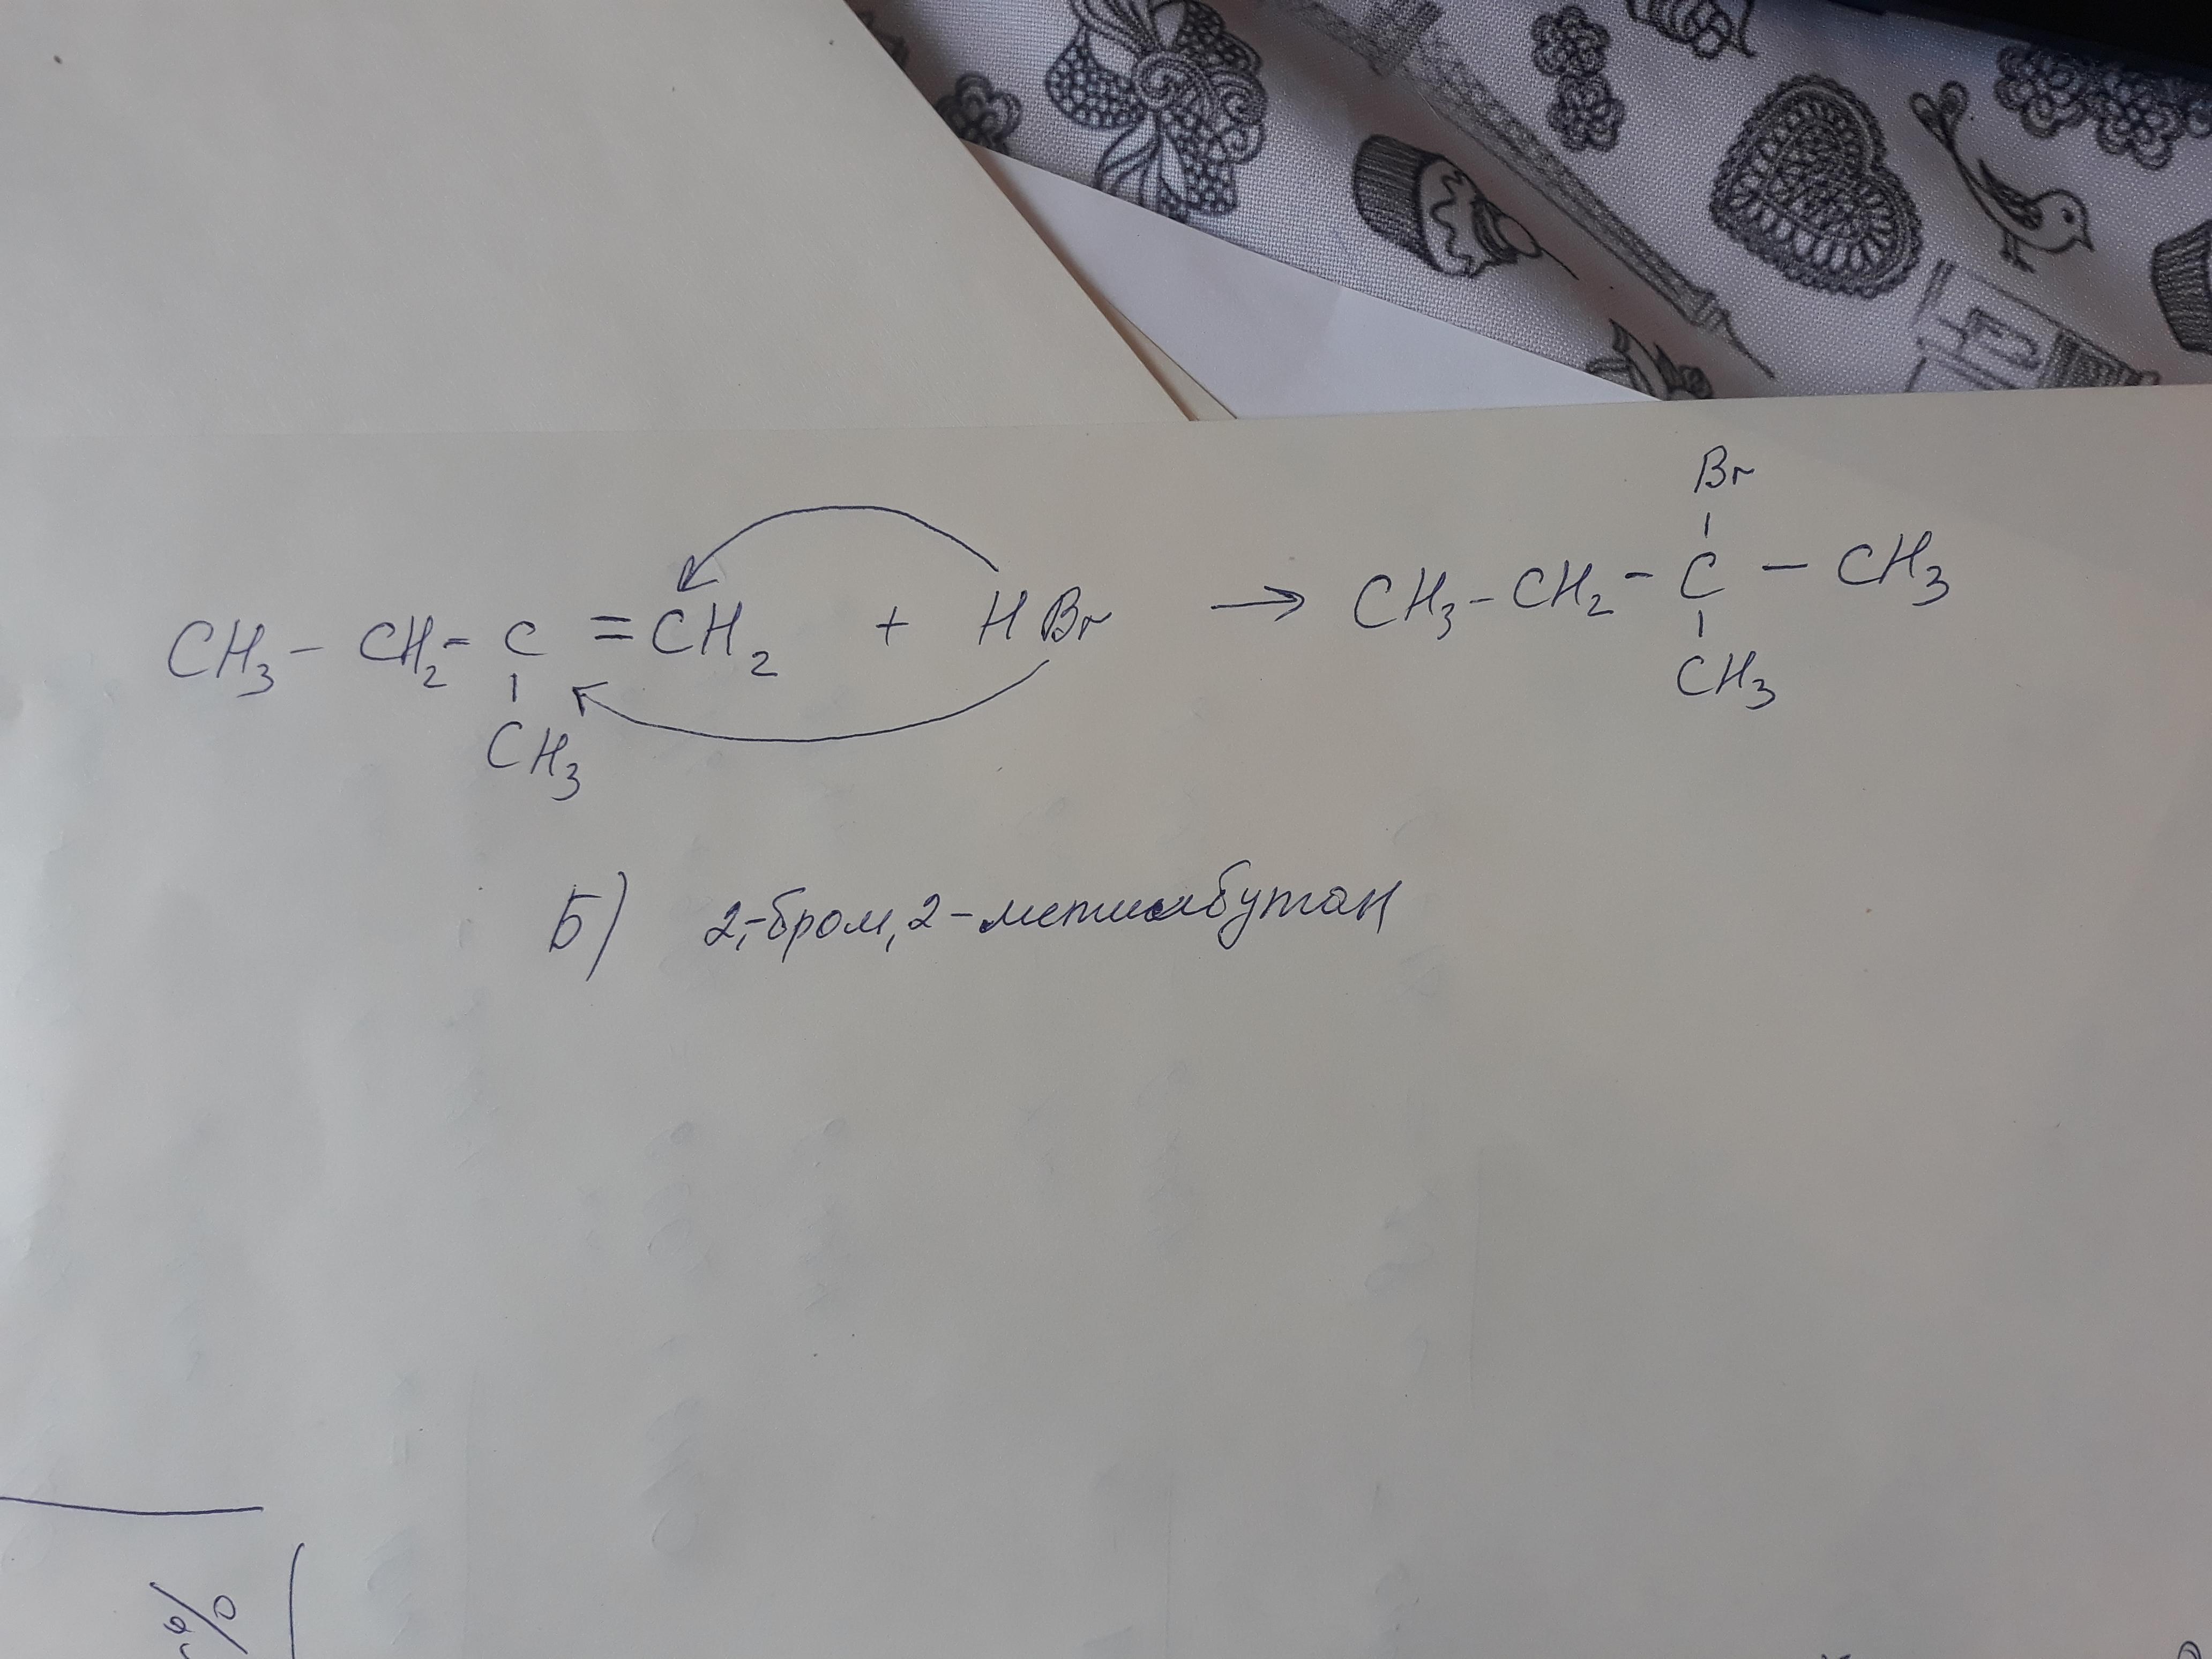 CH3 - CH2 - C = CH2 + HBr → CH3 - CH2 - C - CH3
Br
CH3
CH3
Б) 2,-бром,2-метилбутан
%